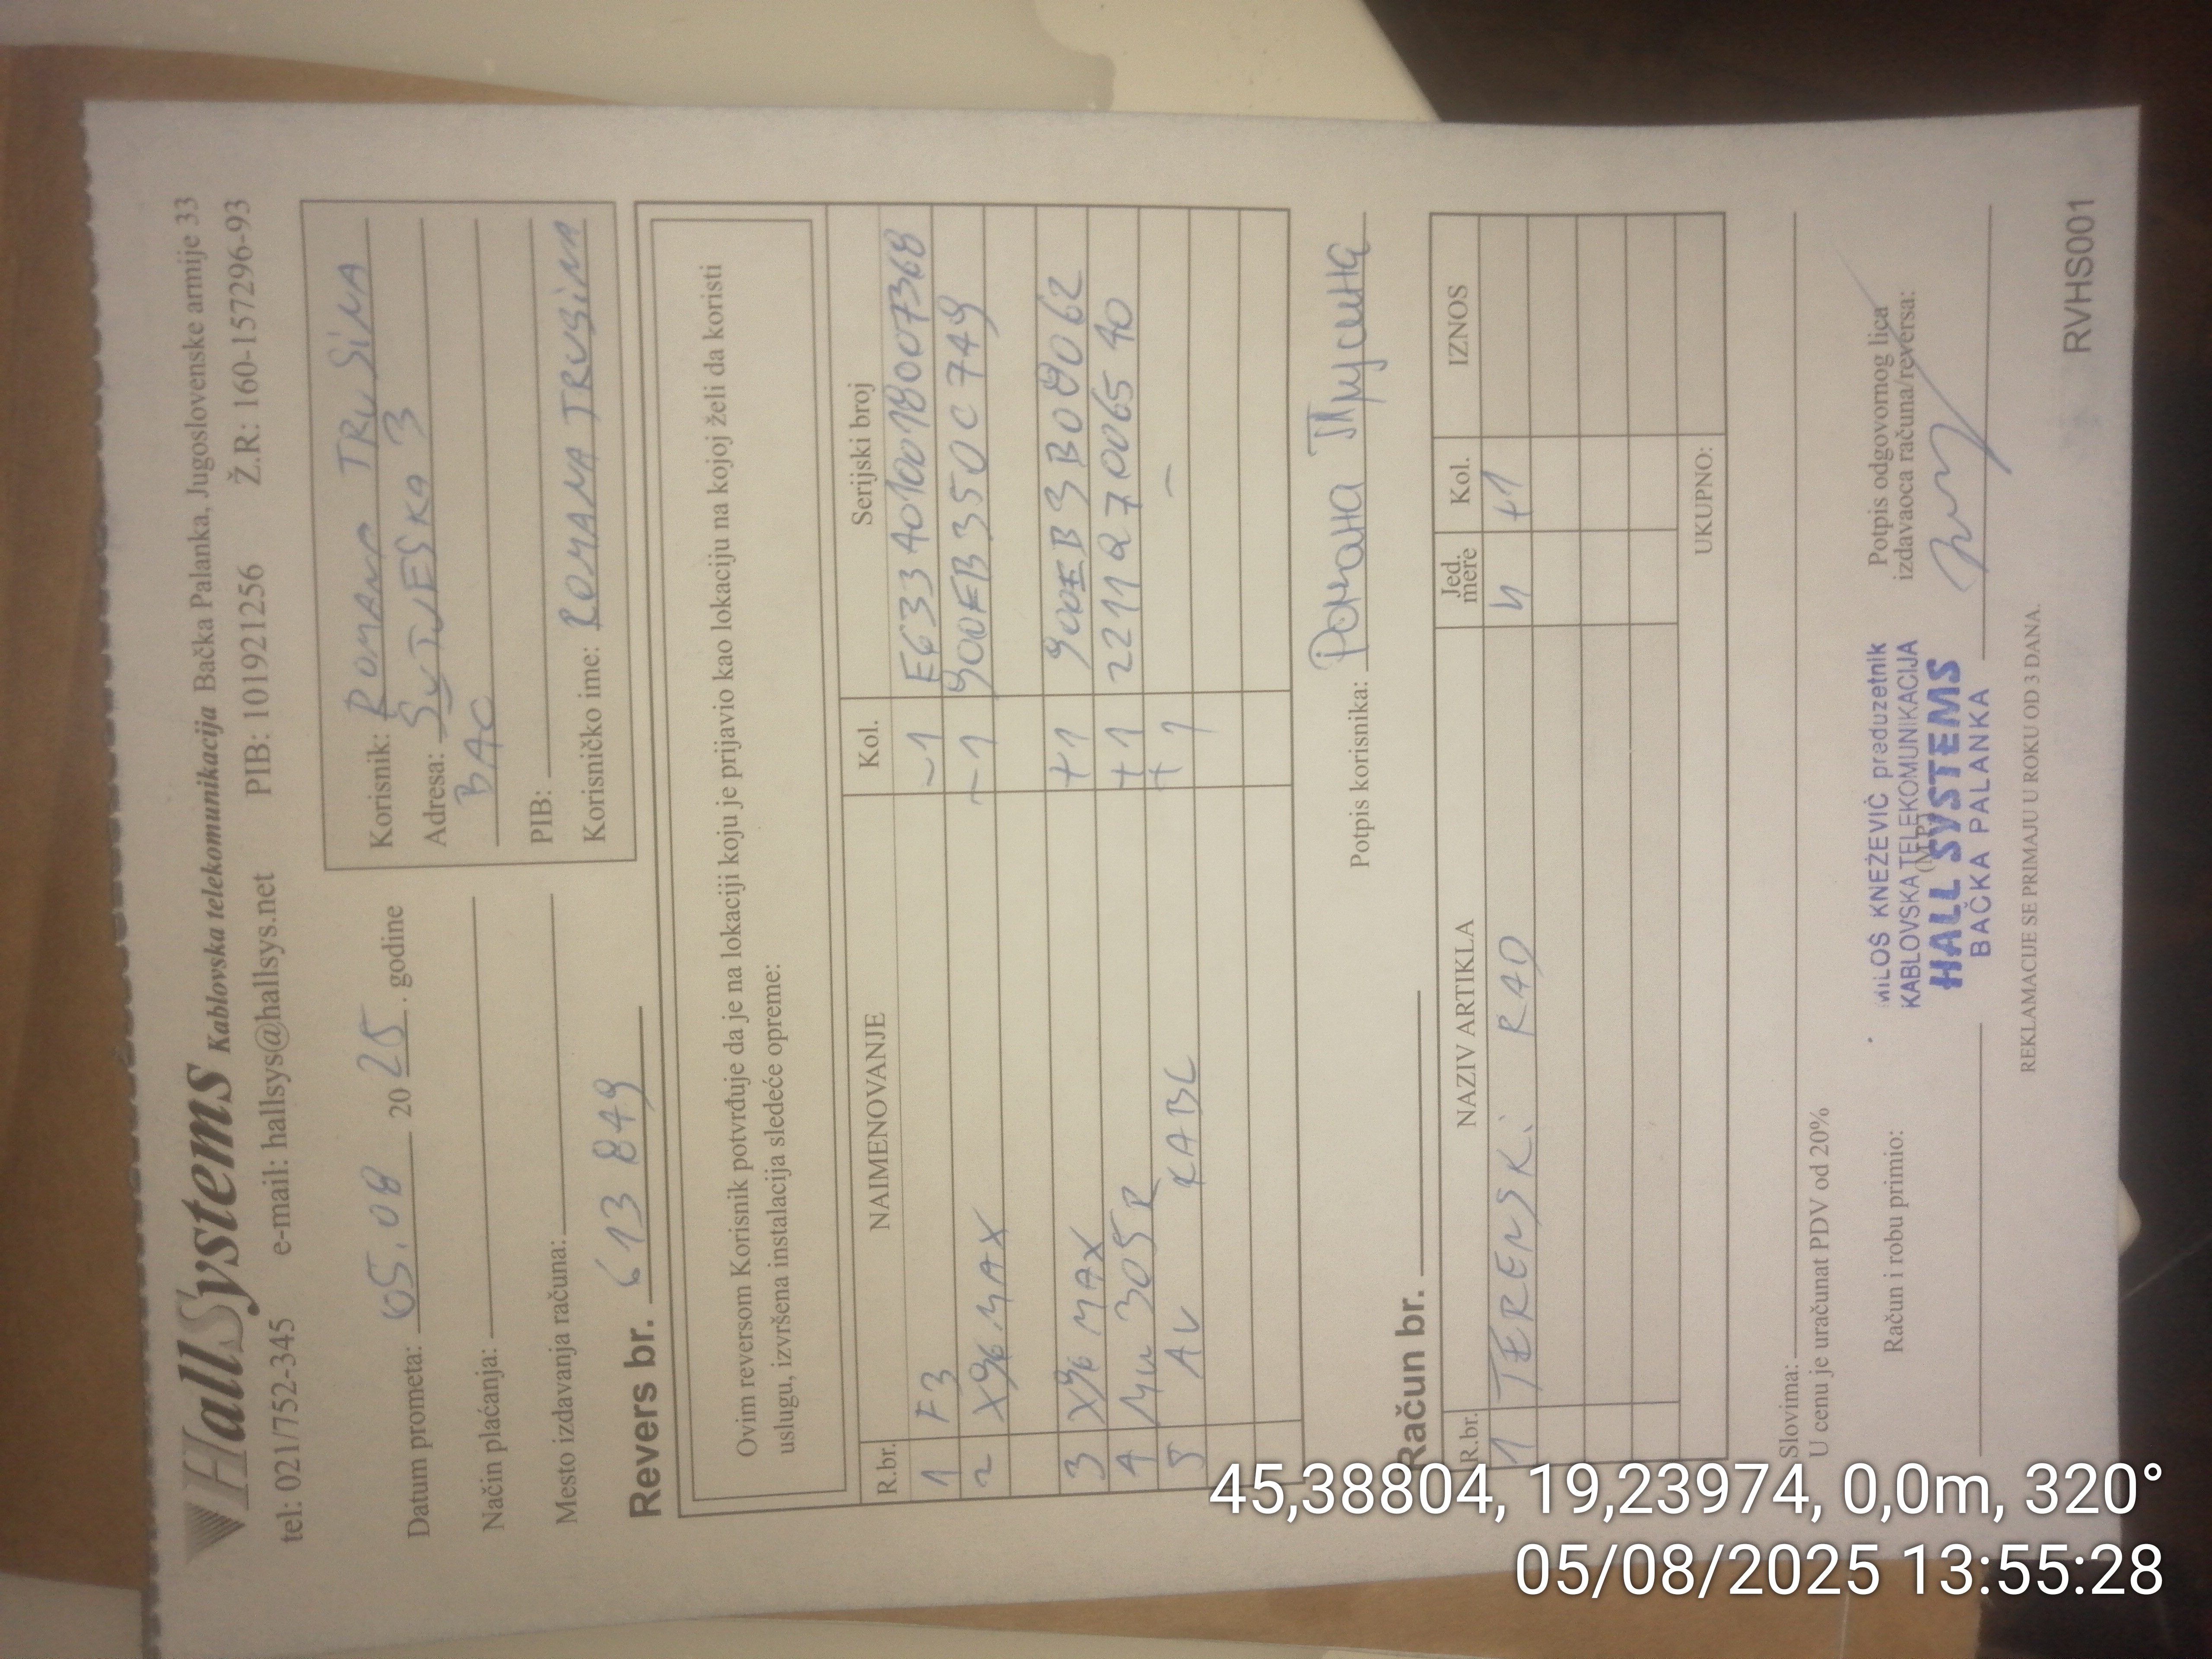 HallSystems Kablovska telekomunikacija Bačka Palanka, Jugoslovenske armije 33
tel: 021/752-345 e-mail: hallsys@hallsys.net PIB: 101921256 Ž.R: 160-157296-93
Datum prometa: 05.08 2025. godine
Način plaćanja:
Mesto izdavanja računa:
Korisnik: ROMANA TRUSiNA
Adresa: SUTJESKA 3
BAC
PIB:
Korisničko ime: ROMANA TRUSiNA
Revers br. 613849
Ovim reversom Korisnik potvrđuje da je na lokaciji koju je prijavio kao lokaciju na kojoj želi da koristi
uslugu, izvršena instalacija sledeće opreme:
R.br. NAIMENOVANJE Kol. Serijski broj
1 F3 -1 E6334010018007368
2 X96 MAX -1 900EB350C749
3 X96 MAX +1 900EB3B09062
4 305R +1 2211Q70006540
5 AV KABL +1 -
Potpis korisnika: Романа Трусина
Račun br.
R.br. NAZIV ARTIKLA Jed. mere Kol. IZNOS
1 TERENSKi RAD h +1
UKUPNO:
Slovima:
U cenu je uračunat PDV od 20%
Račun i robu primio:
(M.P.)
MILOŠ KNEŽEVIĆ preduzetnik
KABLOVSKA TELEKOMUNIKACIJA
HALL SYSTEMS
BAČKA PALANKA
Potpis odgovornog lica
izdavaoca računa/reversa:
REKLAMACIJE SE PRIMAJU U ROKU OD 3 DANA.
RVHS001
45,38804, 19,23974, 0,0m, 320°
05/08/2025 13:55:28